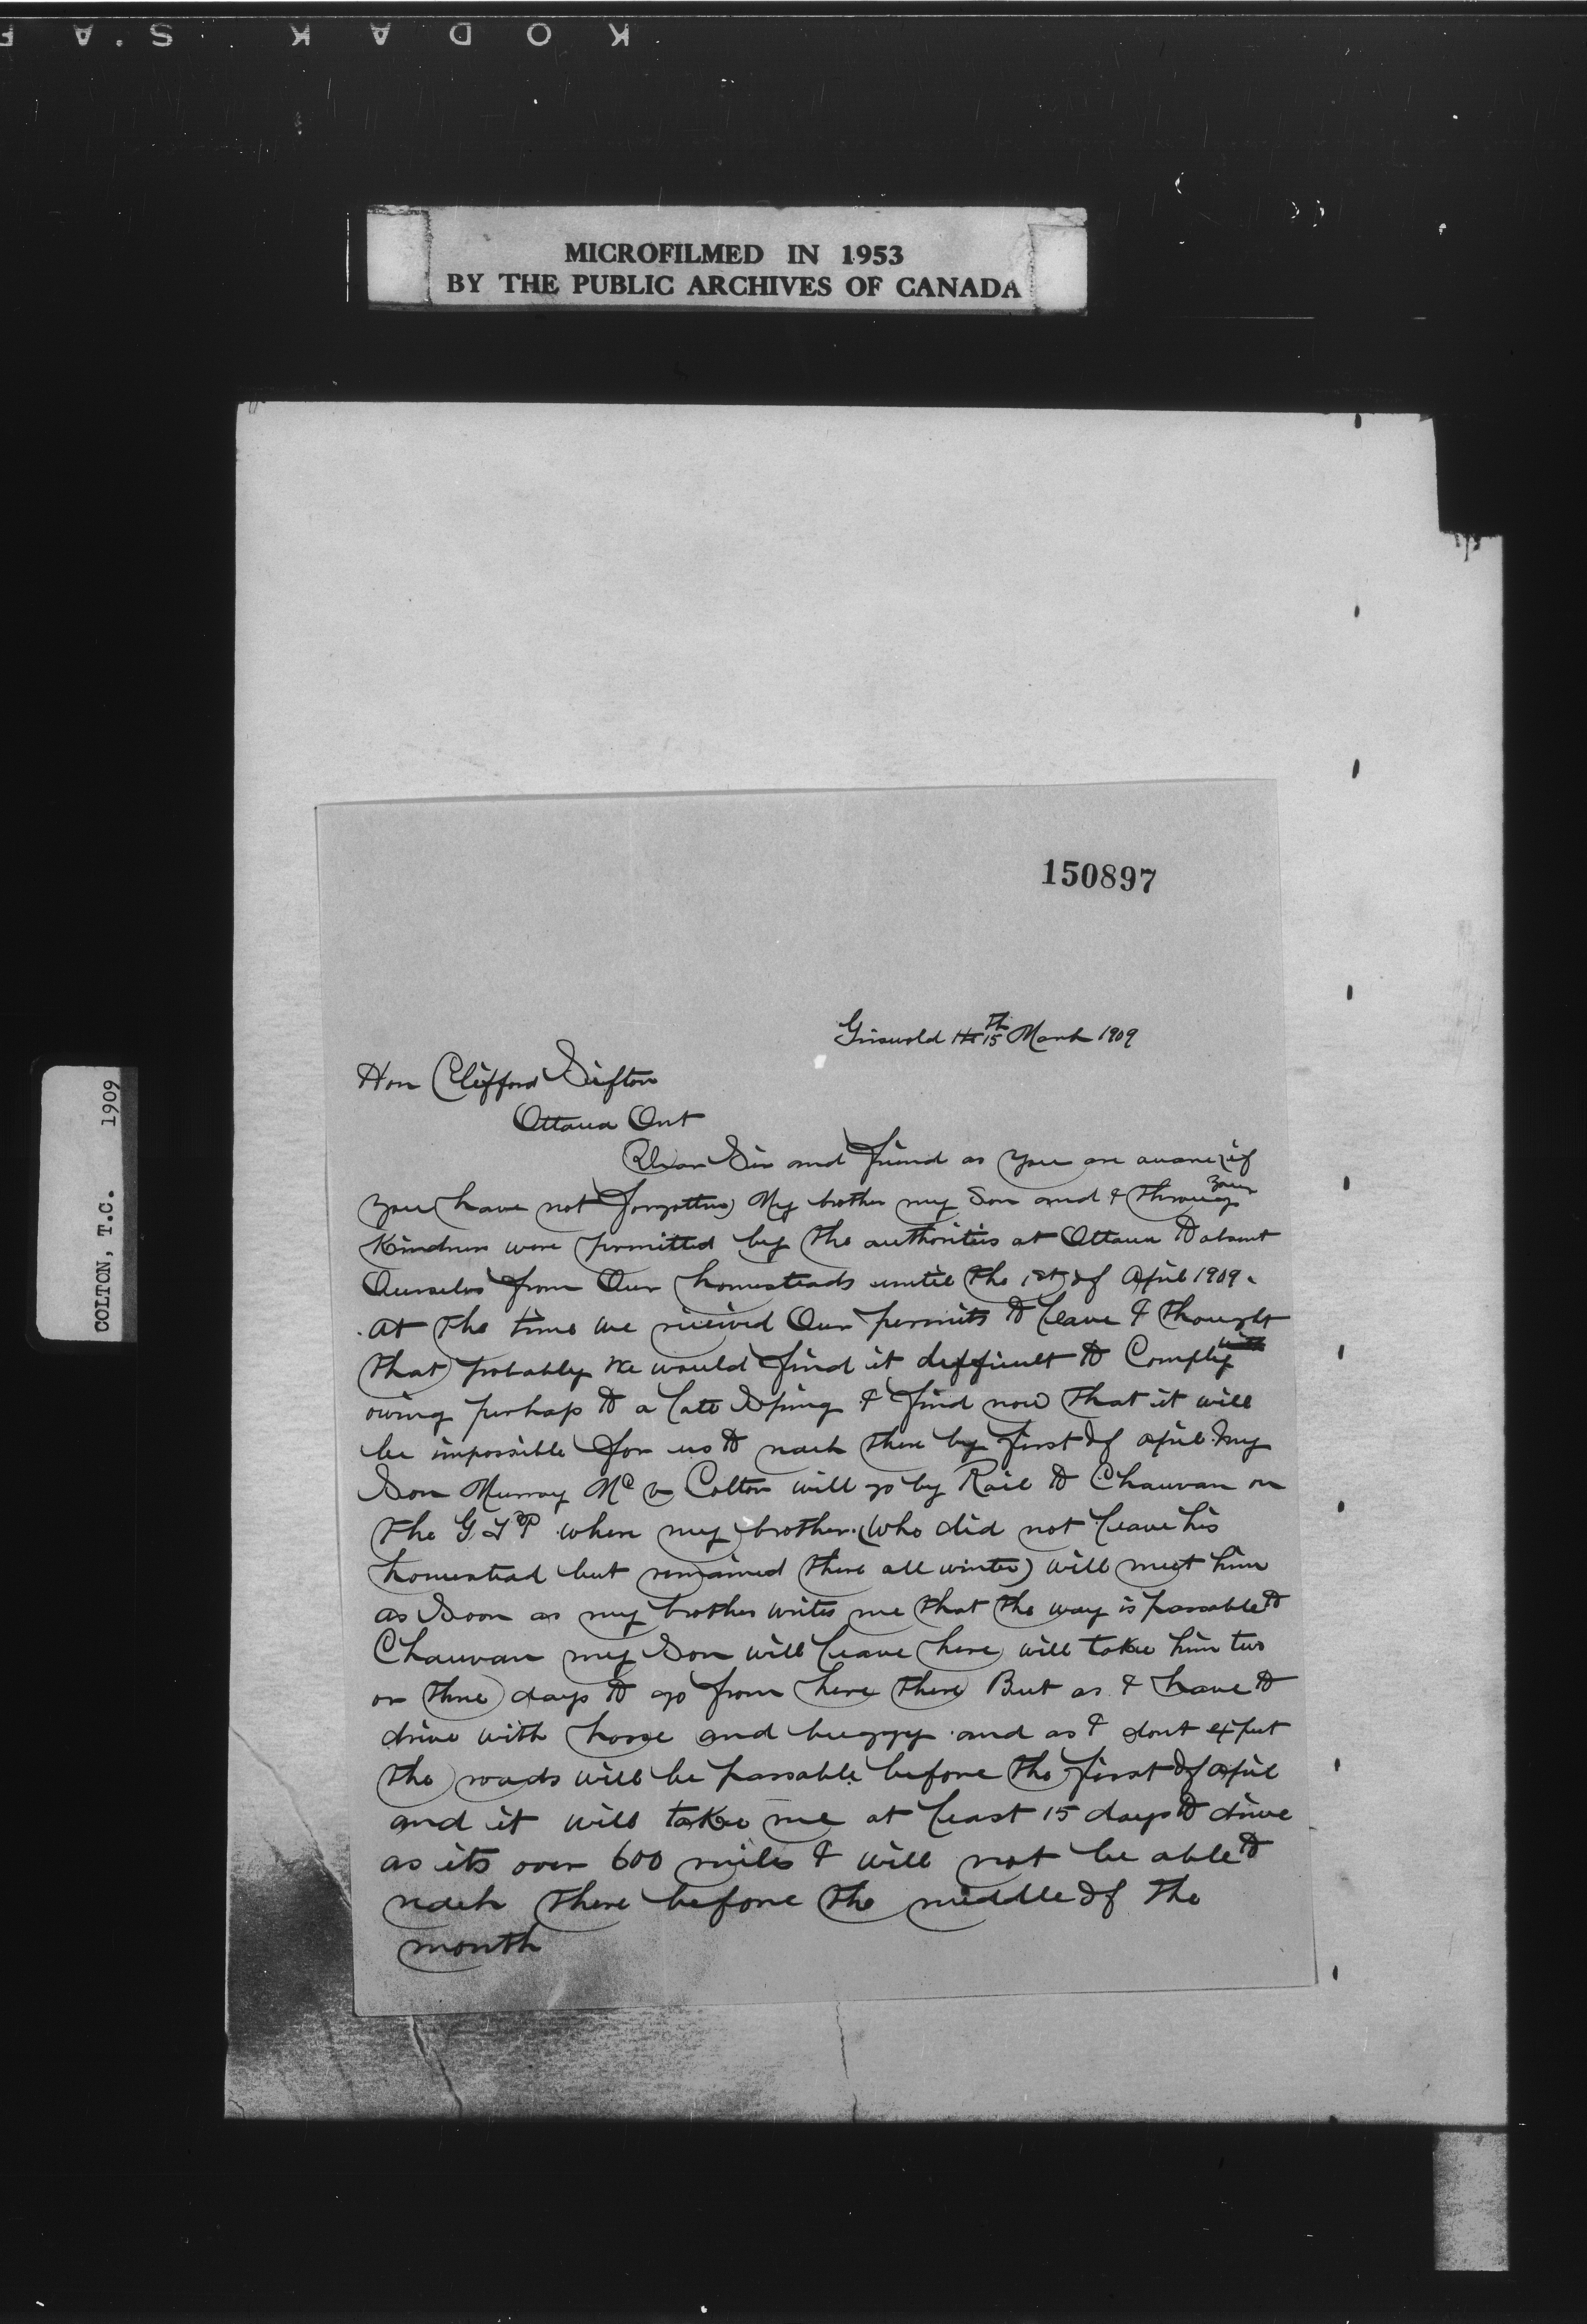 KODAK S.A F
MICROFILMED IN 1953
BY THE PUBLIC ARCHIVES OF CANADA
COLTON, T.C. 1909
150897
Griswold 14 15th March 1909
Hon Clifford Sifton
Ottawa Ont
Dear Sir and friend as you are aware (if
you have not forgotten) My brother my Son and I through your
Kindness were permitted by the authorities at Ottawa to absent
Ourselves from Our homesteads until the 1st of April 1909.
at the time we received Our permits to leave I thought
that probably we would find it difficult to Comply with
owing perhaps to a late Spring I find now that it will
be impossible for us to reach there by first of april. My
Son Murray Mc Colton will go by Rail to Chauvan on
the G T P where my brother (who did not leave his
homestead but remained there all winter) will meet him
as Soon as my brother writes me that the way is passable to
Chauvan my Son will leave here will take him two
or three days to go from here there But as I have to
drive with horse and buggy and as I dont expect
the roads will be passable before the first of april
and it will take me at least 15 days to drive
as its over 600 miles I will not be able to
reach there before the middle of the
month